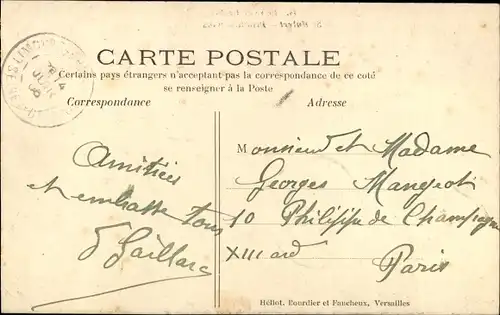 CARTE POSTALE
Certains pays étrangers n'acceptant pas la correspondance de ce coté
se renseigner à la Poste
Correspondance
Adresse
Amitiés
et embrasse tous
Gaillard
Monsieur et Madame
Georges Mangeot
10 Philippe de Champagne
XIII ard
Paris
Héliot. Bourdier et Faucheux, Versailles